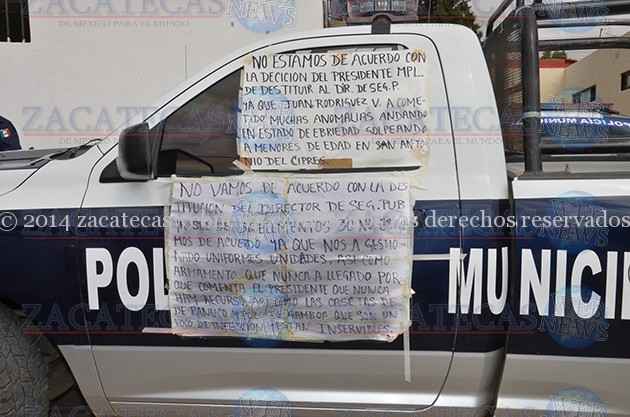 ZACATECAS NEWS
DE MEXICO PARA EL MUNDO
NO ESTAMOS DE ACUERDO CON
LA DECICION DEL PRESIDENTE MPL.
DE DESTITUIR AL DIR. DE SEG. P.
YA QUE JUAN RODRIGUEZ V. A COME-
TADO MUCHAS ANOMALIAS ANDANDO
EN ESTADO DE EBRIEDAD GOLPEANDO
A MENORES DE EDAD EN SAN ANTO
NIO DEL CIPRES.
NO VAMOS DE ACUERDO CON LA DES
TITUCION DEL DIRECTOR DE SEG. PUB
YA QUE DE 36 ELEMENTOS 30 NO ESTA
MOS DE ACUERDO YA QUE NOS A GESTIO-
NADO UNIFORMES UNIDADES, ASI COMO
ARMAMENTO QUE NUNCA A LLEGADO POR
QUE COMENTA EL PRESIDENTE QUE NUNCA
HAY RECURSO, ASI COMO LAS CASETAS DE
DE PANUCO Y QUE SON UN
FOCO DE INFECCION INSERVIBLES.
© 2014 zacatecas derechos reservados
POL MUNICI
POLICIA MUNI